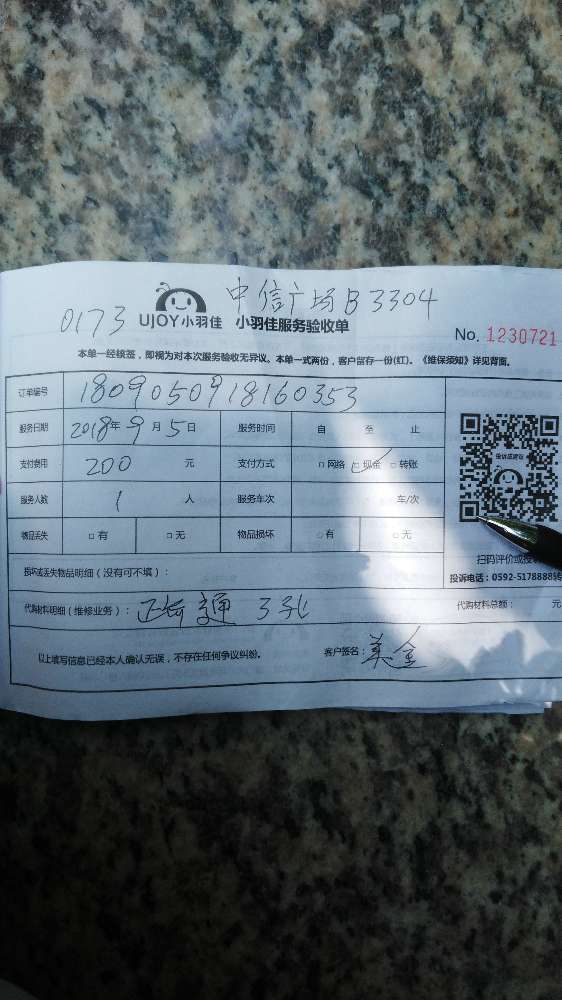 中信广场B3304
0173 UJOY小羽佳 小羽佳服务验收单
No. 1230721
本单一经核签，即视为对本次服务验收无异议。本单一式两份，客户留存一份(红)。《维保须知》详见背面。
订单编号 1809050918160353
服务日期 2018年9月5日 服务时间 自 至 止
支付费用 200 元 支付方式 □网络 ☑现金 □转账
服务人数 1 人 服务车次 车/次
物品丢失 □有 □无 物品损坏 □有 □无
投诉或建议
扫码评价或投
投诉电话：0592-5178888转
损坏或丢失物品明细（没有可不填）：
代购材料明细（维修业务）： 通 3孔 代购材料总额： 元
以上填写信息已经本人确认无误，不存在任何争议纠纷。 客户签名：